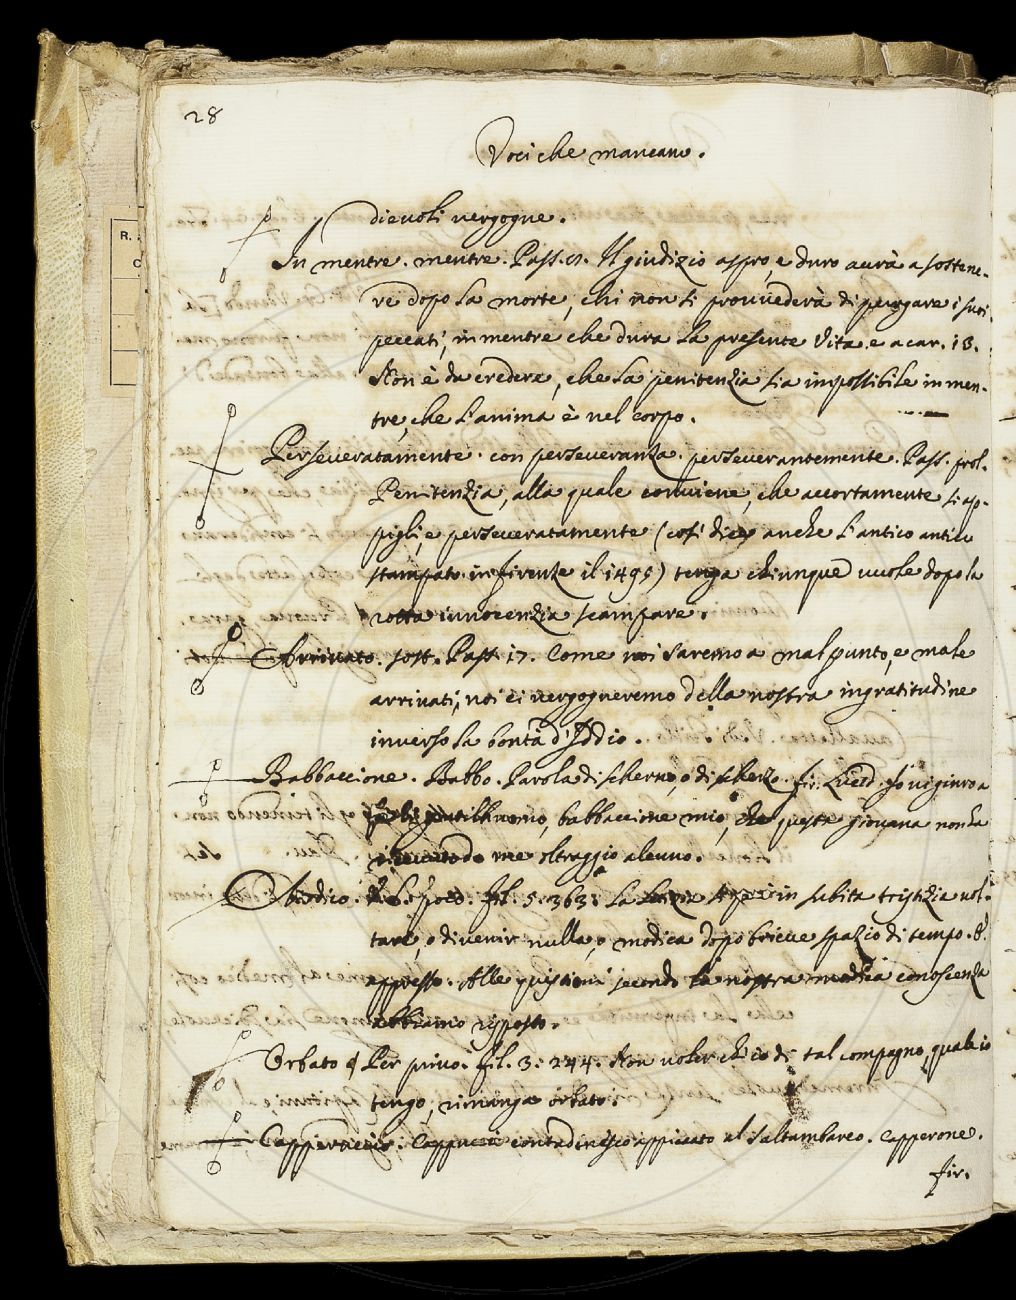 28
Voci che mancano.
dievoli vergogne.
In mentre. mentre. Pass. Il giudizio aspro, e duro aurà a sostene-
re dopo la morte, chi non si provvederà di purgare i suoi
peccati, in mentre che dura la presente vita. e a car. 13.
Non è da credere, che la penitenzia sia impossibile in men-
tre, che l'anima è nel corpo.
Perseveratamente. con perseveranza. perseverantemente. Pass. prol.
Penitenzia, alla quale conviene, che accortamente s'ap-
pigli, e perseveratamente (così dice anche l'antico
stampato in firenze il 1495) tenga chiunque vuole dopo la
rotta innocenzia scampare.
Arrivato. sost. Pass. 17. Come noi saremo a mal punto, e male
arrivati, noi ci vergogneremo della nostra ingratitudine
inverso la bontà d'Iddio.
Babbaccione. Babbo. Parola di scherno, o di scherzo. fir. Io vi giuro a
gentilhuomo, babbaccione mio, che questa giovana non ha
da me oltraggio alcuno.
fil. 5. 363. La in subita tristizia vol-
tare, o divenir nulla, o modica dopo brieve spazio di tempo. &
appresso. Alle quistioni secondo la nostra modica conoscenza
abbiamo risposto.
Orbato Per privo. fil. 3. 244. Non voler ch'io di tal compagno, qual io
tengo, rimanga orbato.
Cappuccio contadinesco appiccato al saltambarco. Capperone.
fir.